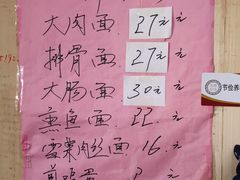 大肉面 27元
排骨面 27元
大肠面 30元
熏鱼面 22.元
雪菜肉丝面 16.元
煎鸡蛋
节俭养